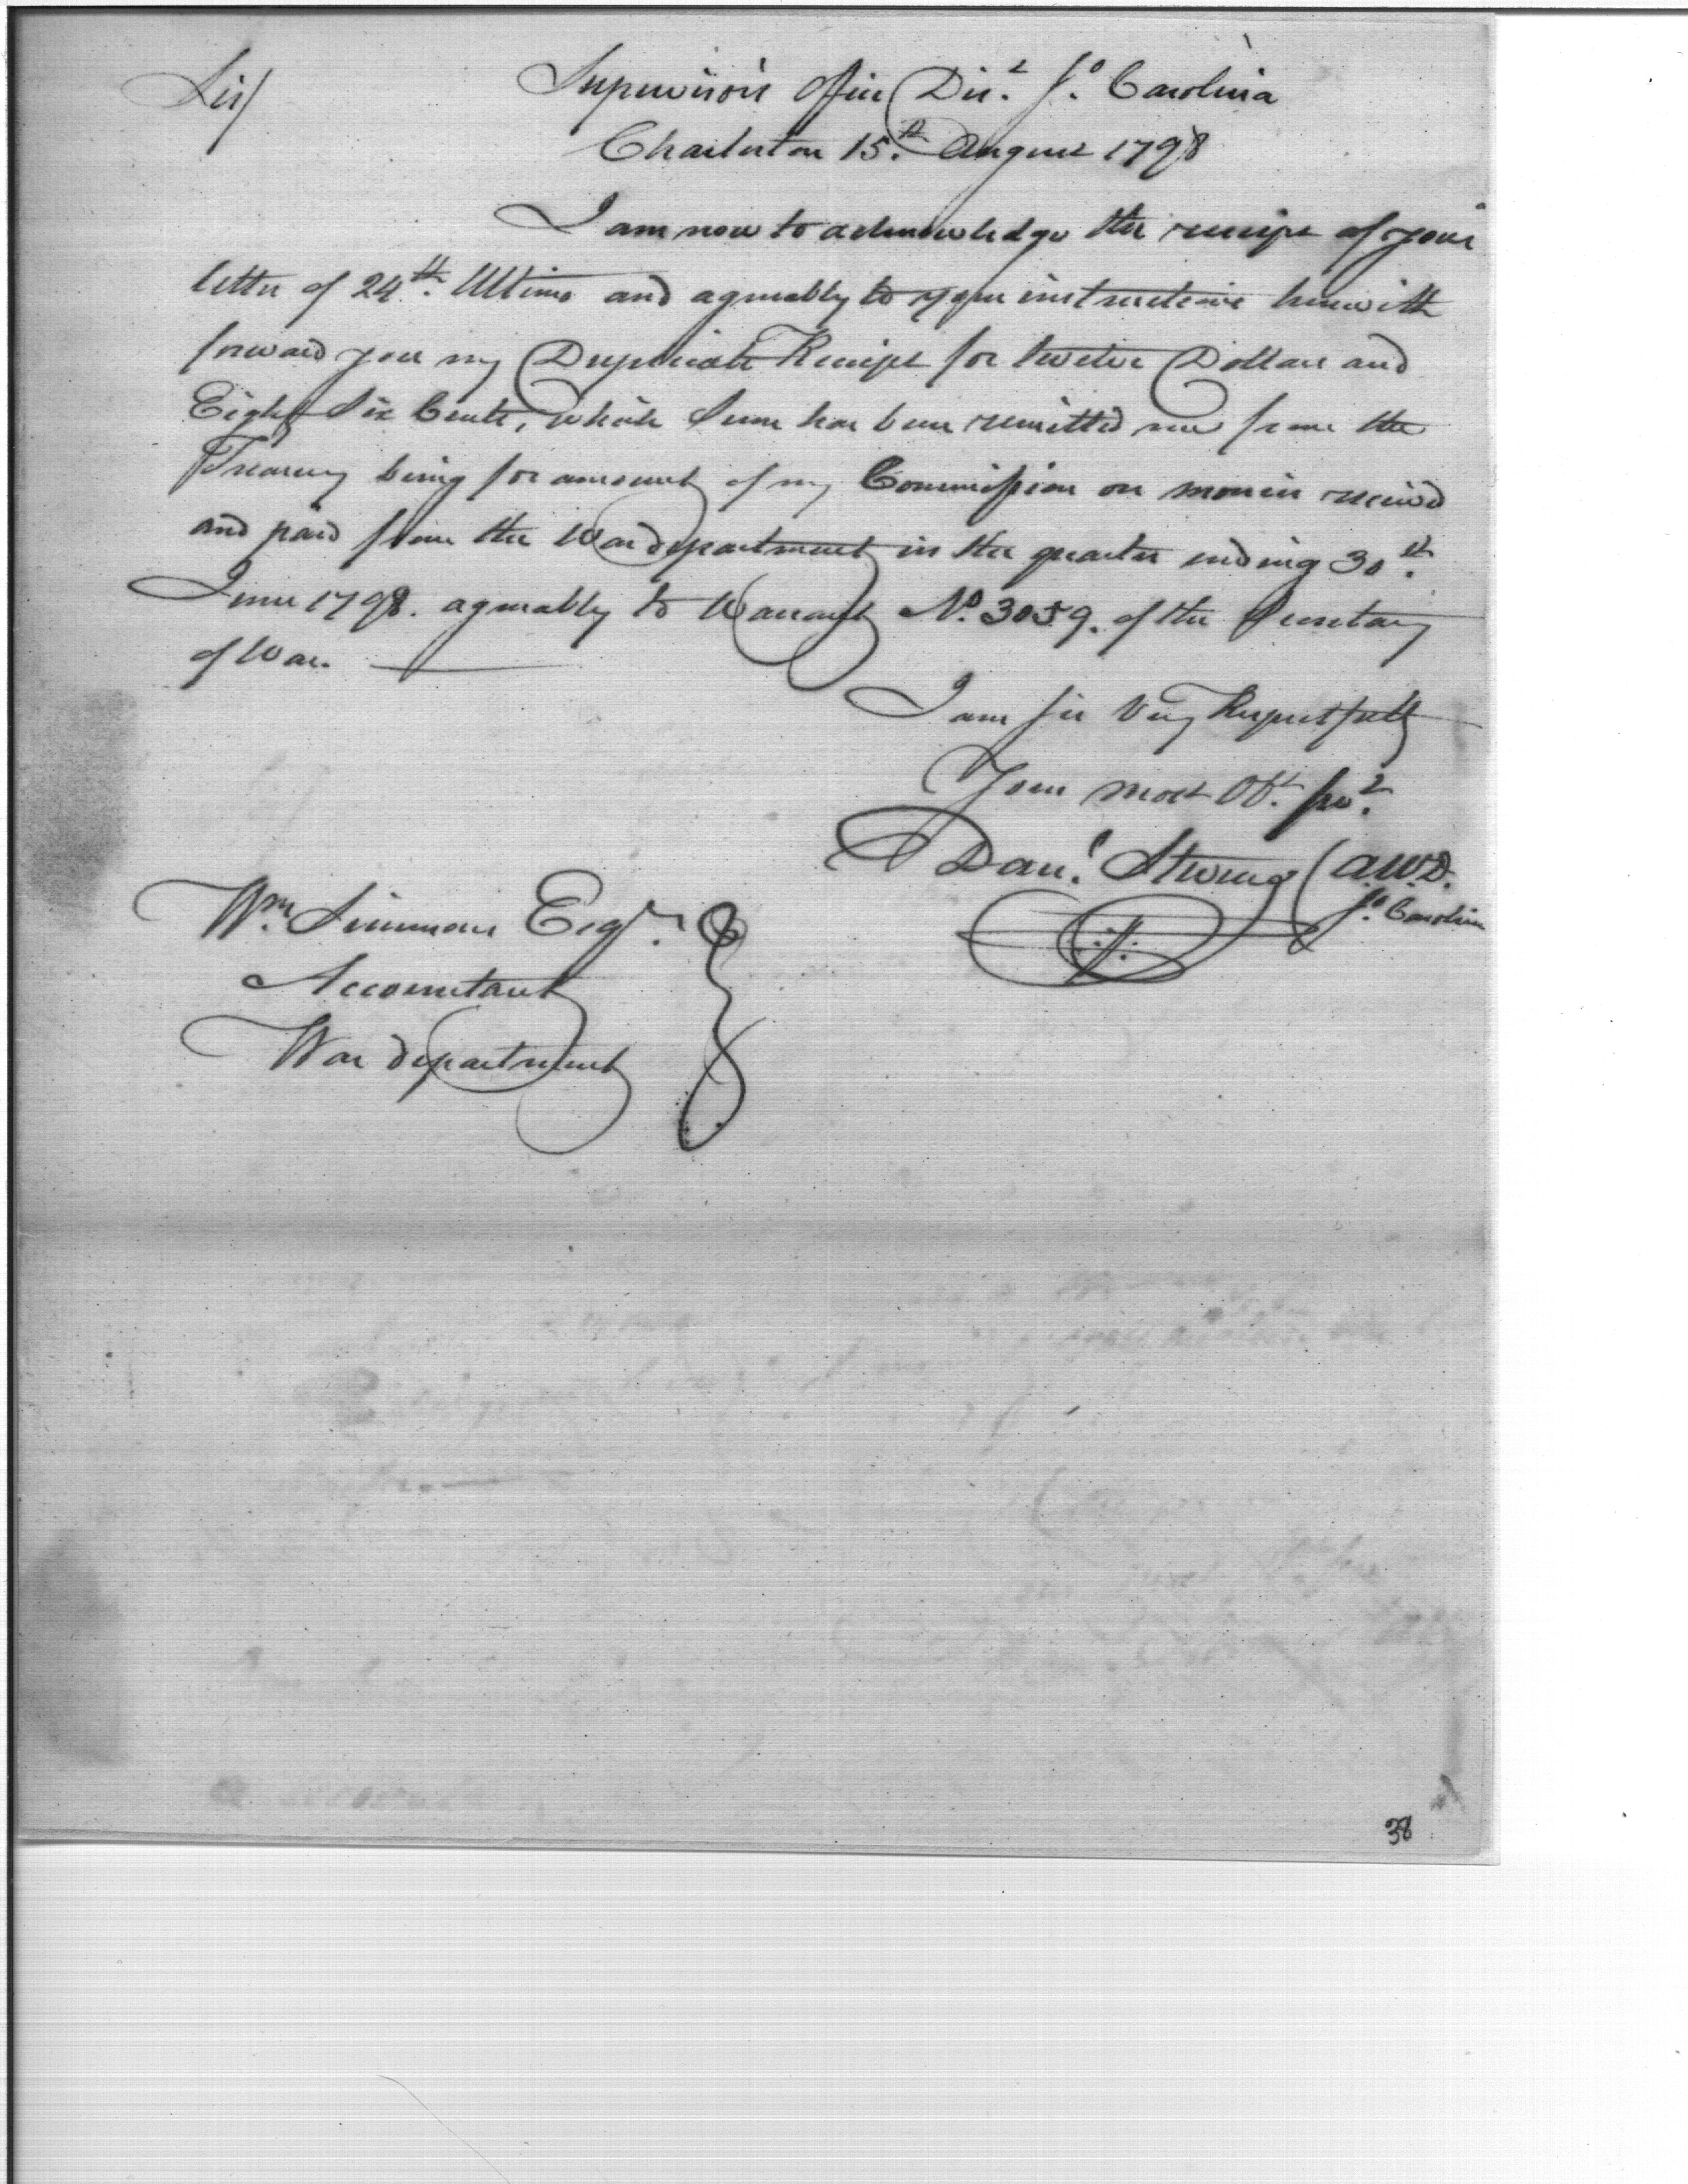 Sir/
Supervisor's Office Dist. So. Carolina
Charleston 15.th August 1798
I am now to acknowledge the receipt of your
letter of 24th. Ultimo and agreeably to your instructions herewith
forward you my Duplicate Receipt for twelve Dollars and
Eighty Six Cents, which Sum has been remitted me from the
Treasury being for amount of my Commission on monies received
and paid from the War department in the quarter ending 30th.
June 1798. agreeably to Warrant No. 3059. of the Secretary
of War.
I am Sir Very Respectfully
Your most Obt. Sert.
Danl. Stevens (AWD.
So. Carolina
Wm. Simmons Esqr.
Accountant
War department
38